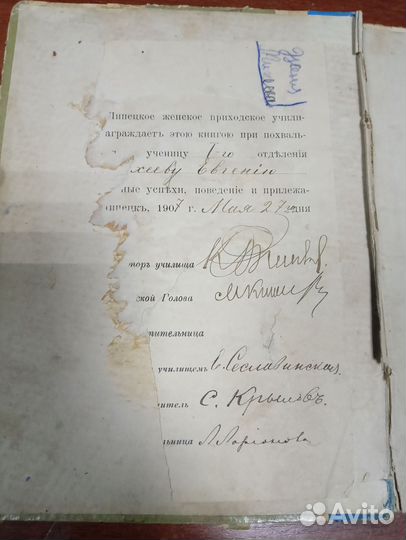 Липецкое женское приходское учили-
аграждаетъ этою книгою при похваль-
ученицу 1го отдѣленія
хееву Евгенію
ные успѣхи, поведеніе и прилежа-
ипецкъ, 1907 г. Мая 27 дня
торъ училища
ской Голова
ительница
училищемъ Сеславинская.
итель С. Крыловъ
льница Л. Ларіонова
Avito